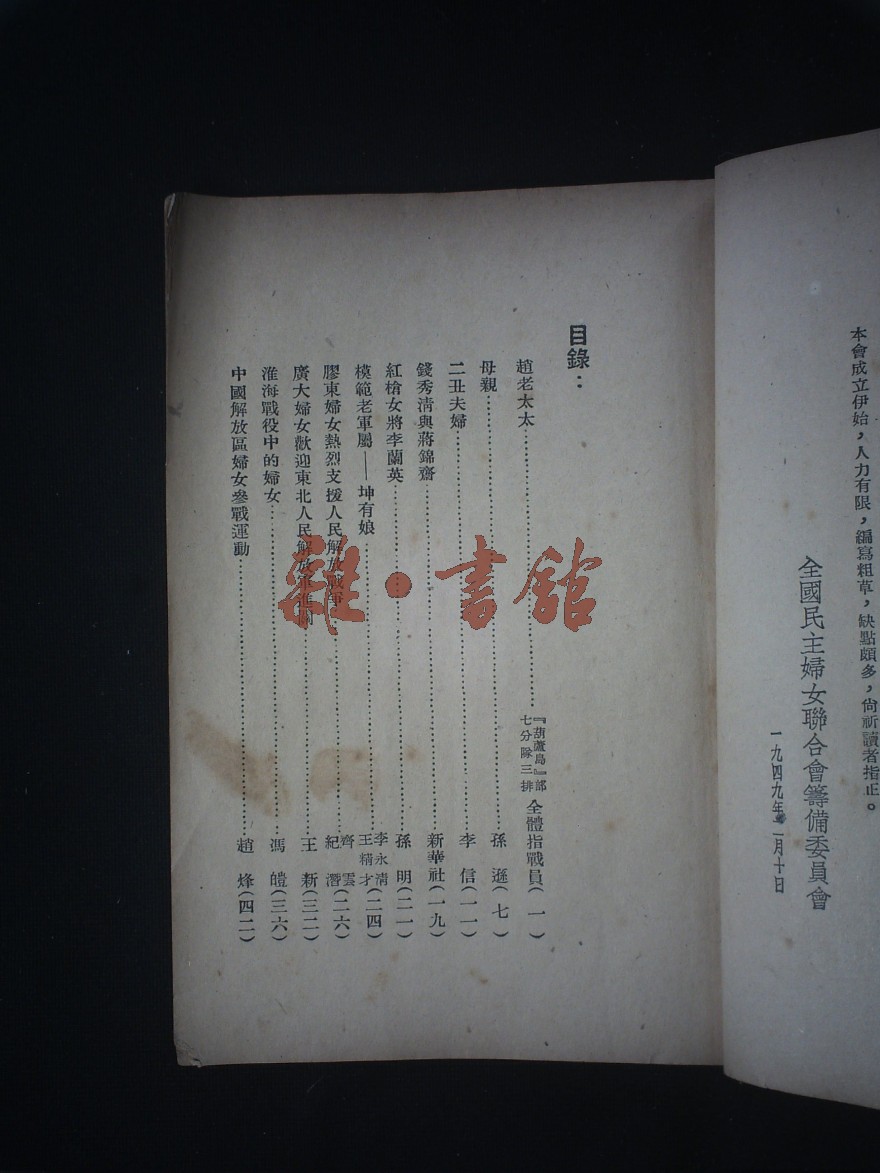 本會成立伊始，人力有限，編寫粗草，缺點頗多，尙祈讀者指正。
全國民主婦女聯合會籌備委員會
一九四九年二月十日
目錄：
趙老太太……『葫蘆島』部七分隊三排全體指戰員（一）
母親……孫遜（七）
二丑夫婦……李信（一一）
錢秀清與蔣錦齋……新華社（一九）
紅槍女將李蘭英……孫明（二一）
模範老軍屬——坤有娘……李永清 王精才（二四）
膠東婦女熱烈支援人民解放戰爭……齊雲 紀潛（二六）
廣大婦女歡迎東北人民解放軍進關……王新（三二）
淮海戰役中的婦女……馮皚（三六）
中國解放區婦女參戰運動……趙烽（四二）
雜·書館